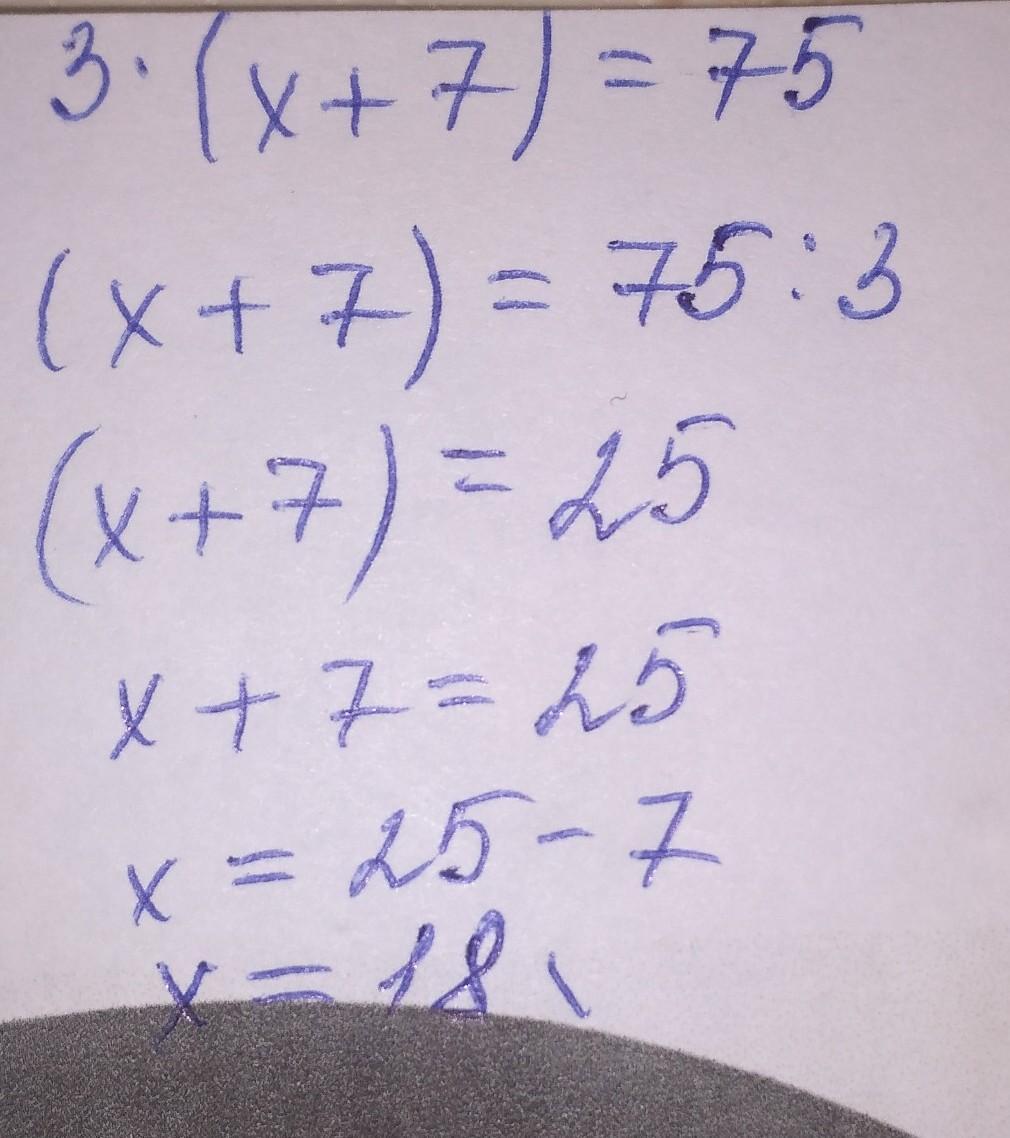 3·(x+7)=75
(x+7)=75:3
(x+7)=25
x+7=25
x=25-7
x=18